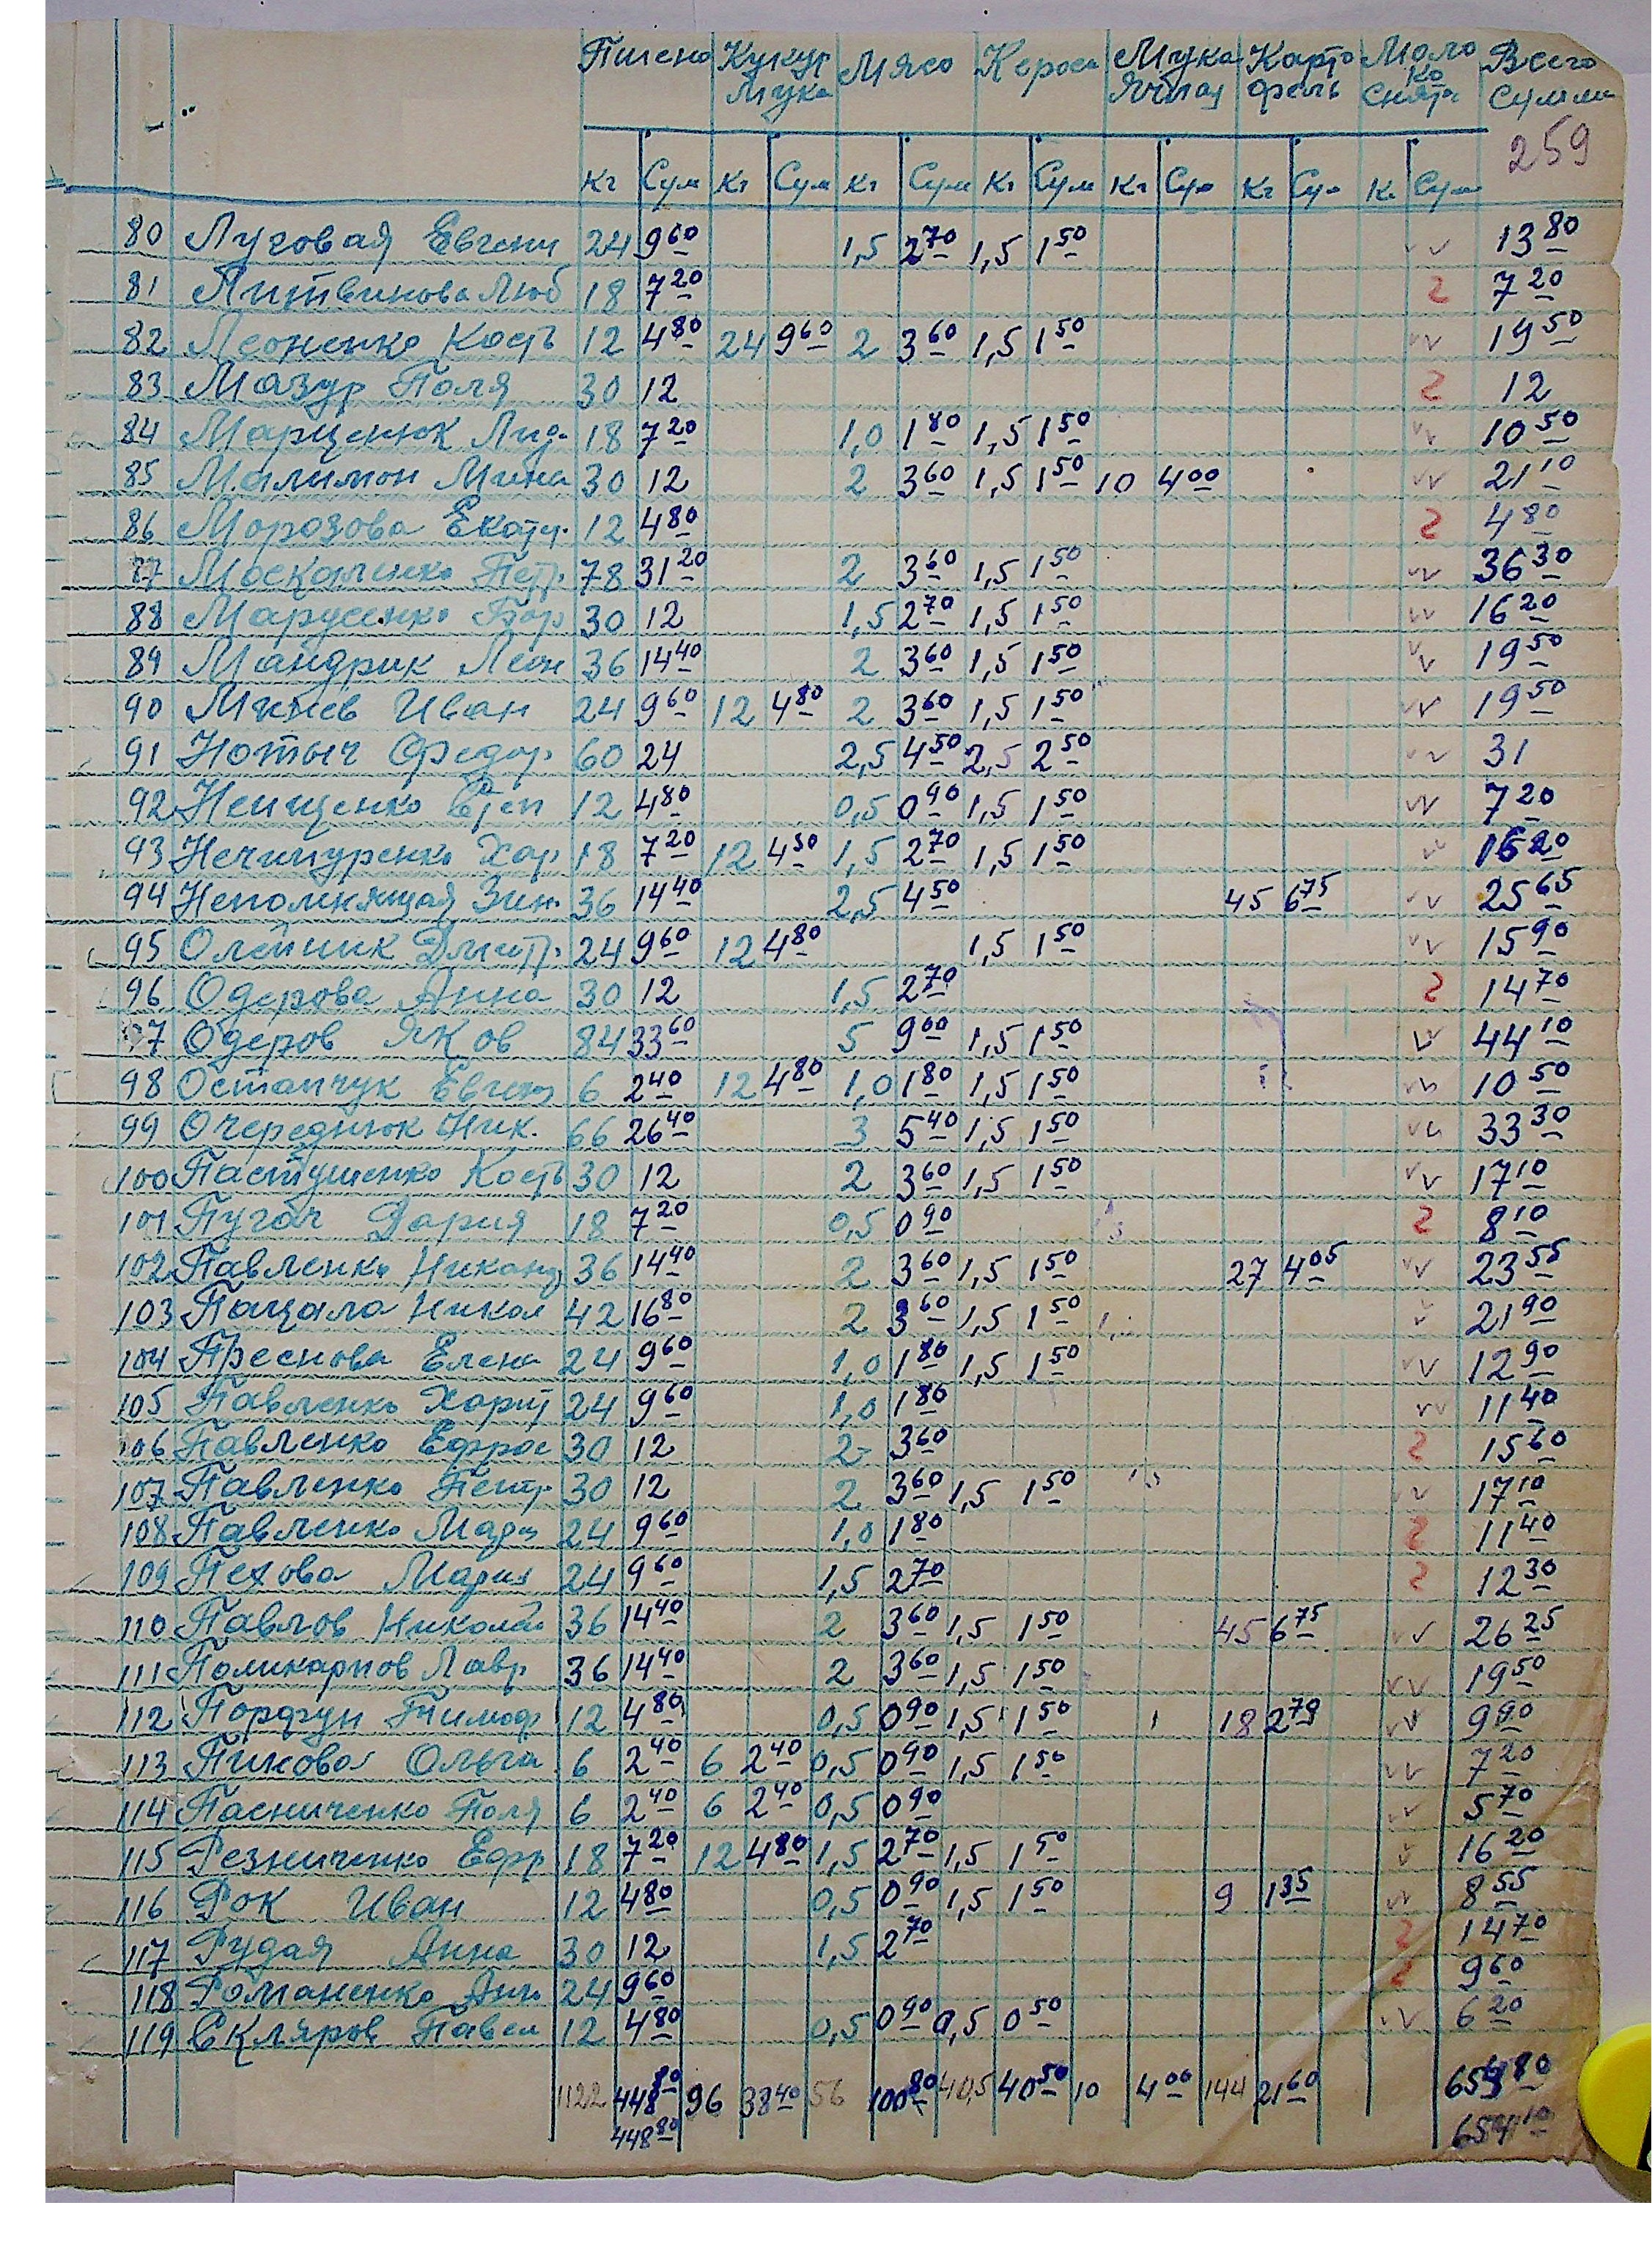 Пшено Кукур Мясо Кероси Мука Карто Моло Всего
Мука Ячная фель ко снята сумма
259
Кг Сум Кг Сум Кг Сум Кг Сум Кг Сум Кг Сум К. Сум
80 Луговая Евгени 24 9 60 1,5 2 70 1,5 1 50 vv 13 80
81 Литвинова Люб 18 7 20 2 7 20
82 Леоненко Кость 12 4 80 24 9 60 2 3 60 1,5 1 50 vv 19 50
83 Мазур Поля 30 12 2 12
84 Марценюк Лид. 18 7 20 1,0 1 80 1,5 1 50 vv 10 50
85 Малимон Мина 30 12 2 3 60 1,5 1 50 10 4 00 vv 21 10
86 Морозова Екатр. 12 4 80 2 4 80
87 Москаленко Петр. 78 31 20 2 3 60 1,5 1 50 vv 36 30
88 Марусенко 30 12 1,5 2 70 1,5 1 50 vv 16 20
89 Мандрик Леон 36 14 40 2 3 60 1,5 1 50 vv 19 50
90 Минев Иван 24 9 60 12 4 80 2 3 60 1,5 1 50 vv 19 50
91 Нотыч Федор. 60 24 2,5 4 50 2,5 2 50 vv 31
92 Неищенко Степ 12 4 80 0,5 0 90 1,5 1 50 vv 7 20
93 Нечипуренко Хар 18 7 20 12 4 80 1,5 2 70 1,5 1 50 vv 16 20
94 Непомнящая Зин. 36 14 40 2,5 4 50 45 6 75 vv 25 65
95 Олейник Дмитр. 24 9 60 12 4 80 1,5 1 50 vv 15 90
96 Одерова Анна 30 12 1,5 2 70 2 14 70
97 Одеров Яков 84 33 60 5 9 00 1,5 1 50 vv 44 10
98 Остапчук Евген 6 2 40 12 4 80 1,0 1 80 1,5 1 50 vv 10 50
99 Очереднюк Ник. 66 26 40 3 5 40 1,5 1 50 vv 33 30
100 Пастушенко Кость 30 12 2 3 60 1,5 1 50 vv 17 10
101 Пугач Дария 18 7 20 0,5 0 90 2 8 10
102 Павленко Никанд 36 14 40 2 3 60 1,5 1 50 27 4 05 vv 23 55
103 Пацала Никол 42 16 80 2 3 60 1,5 1 50 v 21 90
104 Преснова Елена 24 9 60 1,0 1 80 1,5 1 50 vv 12 90
105 Павленко Харит 24 9 60 1,0 1 80 vv 11 40
106 Павленко Ефрос 30 12 2 3 60 2 15 60
107 Павленко Петр 30 12 2 3 60 1,5 1 50 vv 17 10
108 Павленко Мари 24 9 60 1,0 1 80 2 11 40
109 Пехова Мария 24 9 60 1,5 2 70 2 12 30
110 Павлов Николай 36 14 40 2 3 60 1,5 1 50 45 6 75 vv 26 25
111 Поликарпов Лавр 36 14 40 2 3 60 1,5 1 50 vv 19 50
112 Порфун Тимоф 12 4 80 0,5 0 90 1,5 1 50 18 2 70 vv 9 90
113 Пикова Ольга 6 2 40 6 2 40 0,5 0 90 1,5 1 50 vv 7 20
114 Пасниченко Поля 6 2 40 6 2 40 0,5 0 90 vv 5 70
115 Резниченко Ефр 18 7 20 12 4 80 1,5 2 70 1,5 1 50 v 16 20
116 Рок Иван 12 4 80 0,5 0 90 1,5 1 50 9 1 35 vv 8 55
117 Рудая Анна 30 12 1,5 2 70 2 14 70
118 Романенко Анн 24 9 60 2 9 60
119 Скляров Павел 12 4 80 0,5 0 90 0,5 0 50 vv 6 20
1122 448 80 96 38 40 56 100 80 40,5 40 50 10 4 00 144 21 60
448 80 654 10